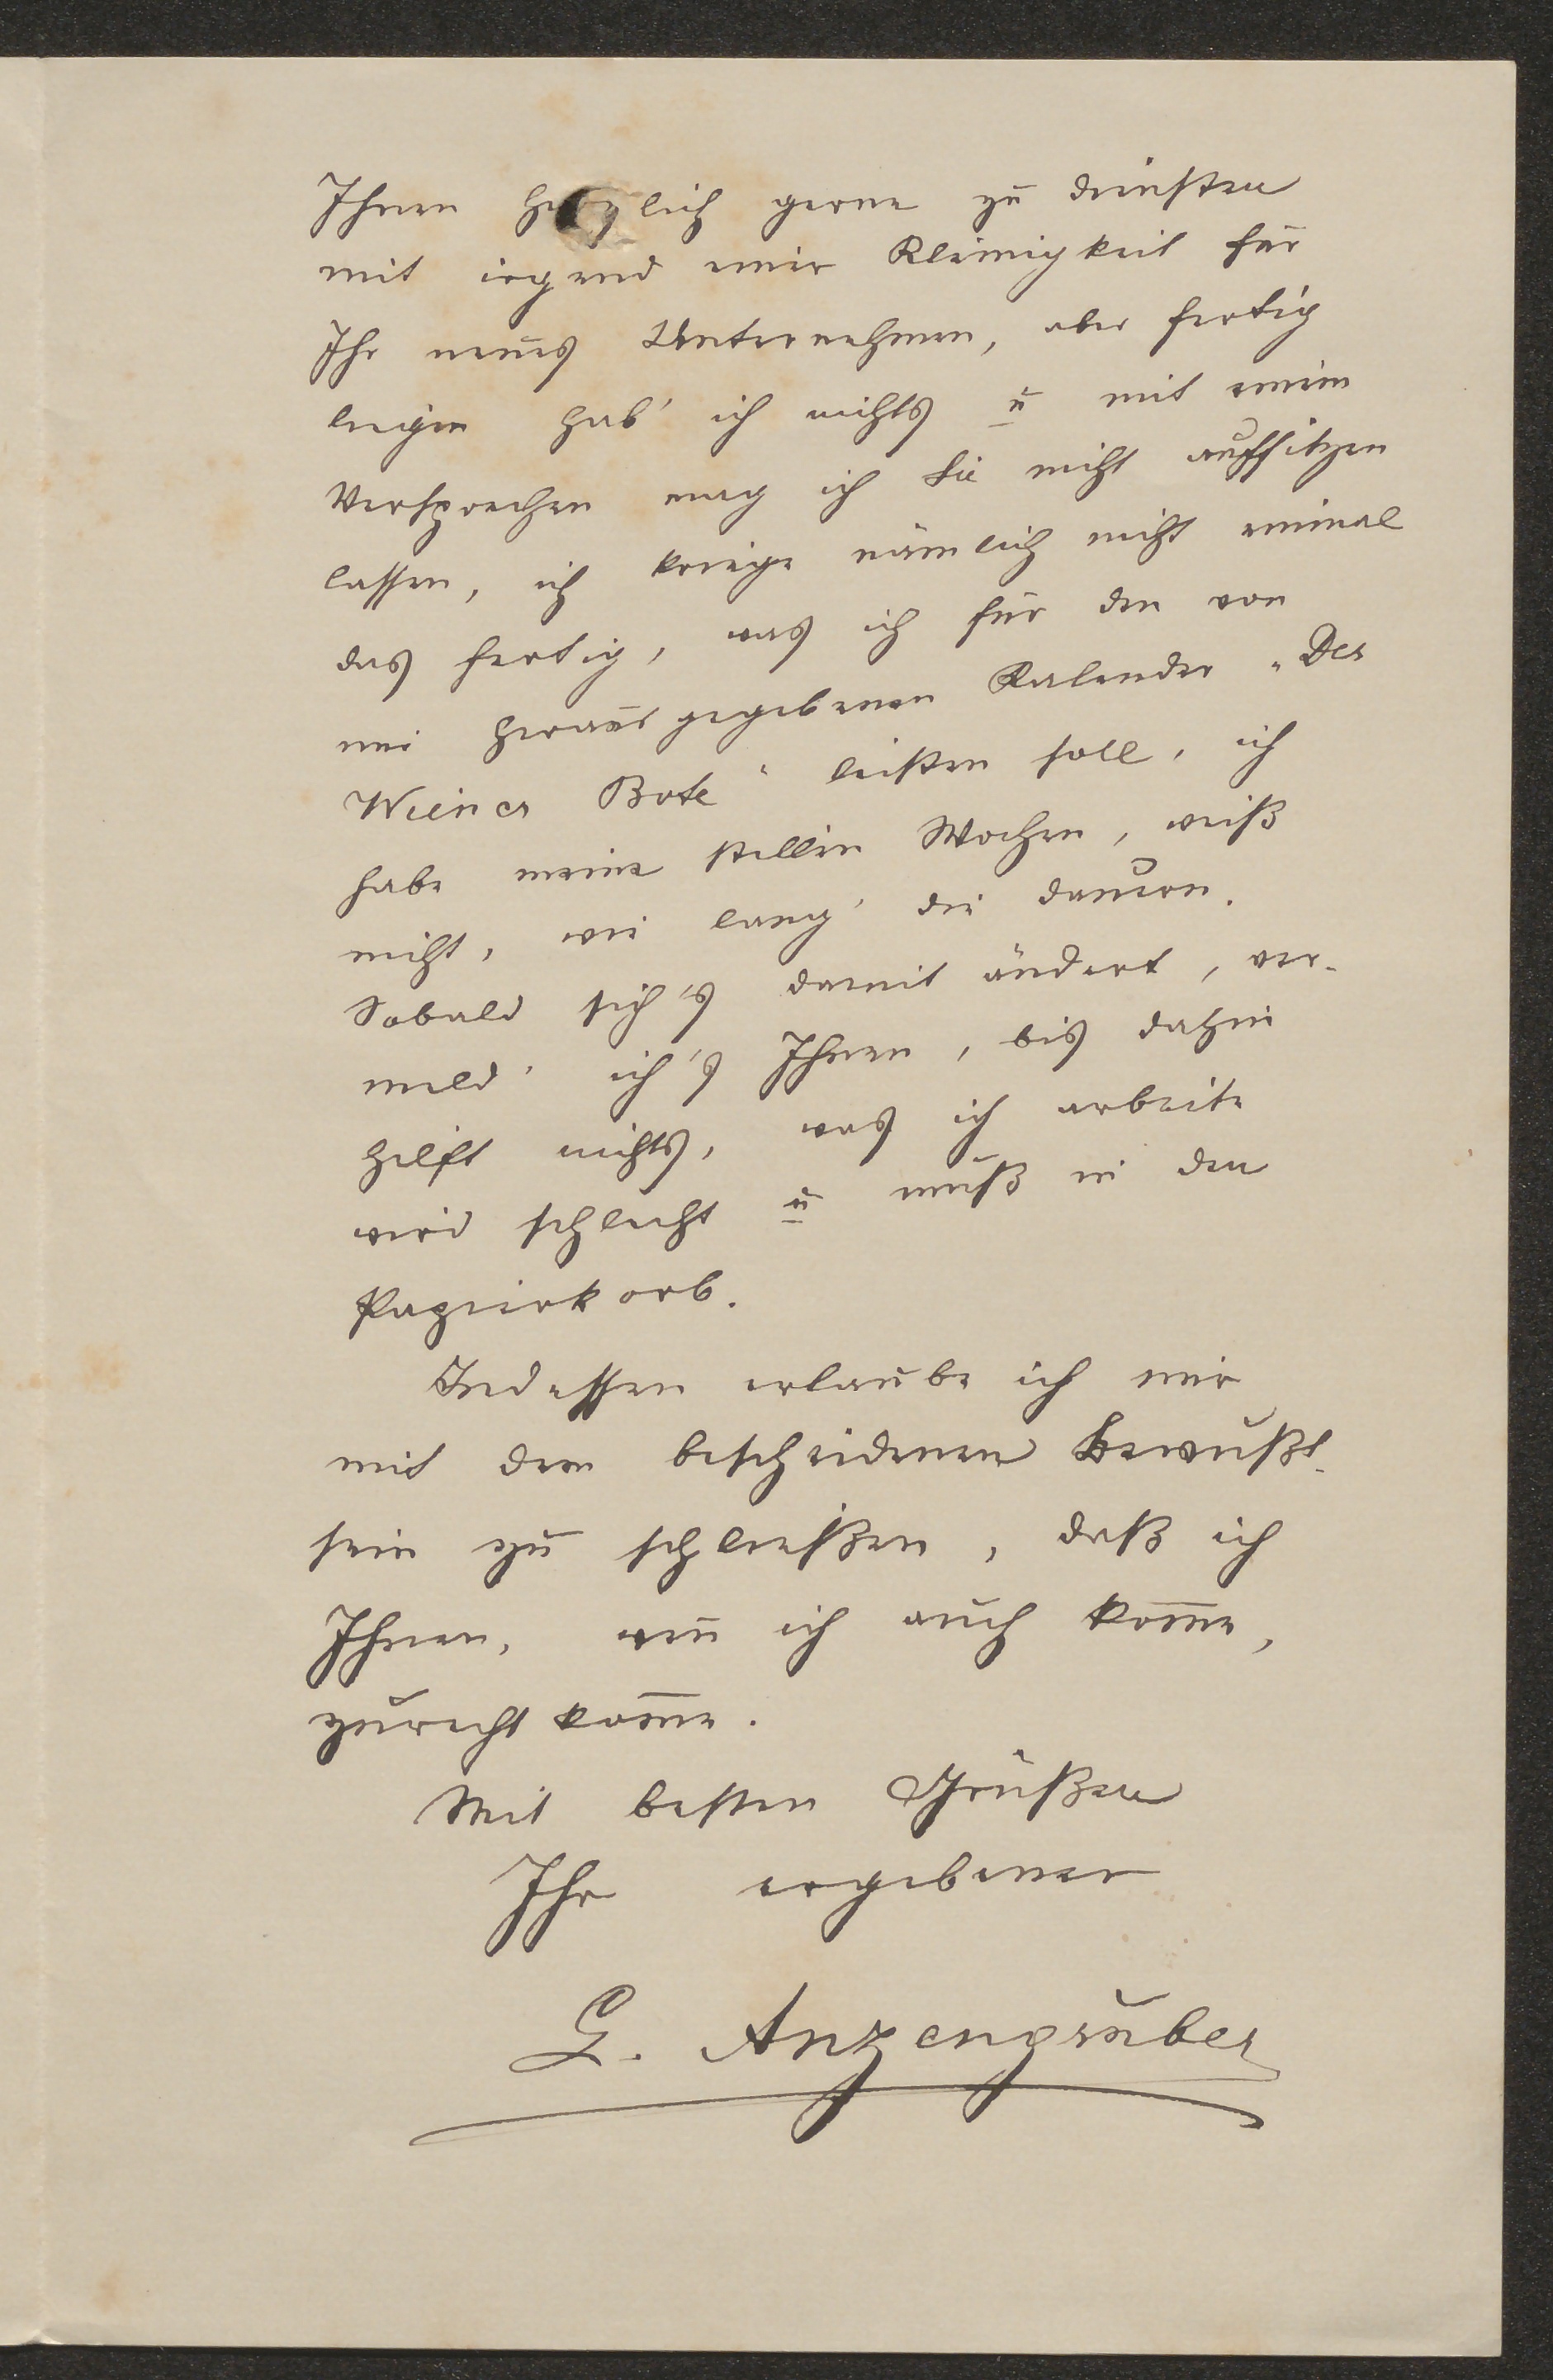 Ihnen herzlich gerne zu diensten
mit irgend einer Kleinigkeit für
Ihr neues Unternehmen, aber fertig
liegen hab' ich nichts u mit einem
Versprechen mag ich Sie nicht aufsitzen
lassen, ich kriege nämlich nicht einmal
das fertig, was ich für den von
mir herausgegebenen Kalender „Der
Wiener Bote“ leisten soll, ich
habe meine stillen Wochen, weiß
nicht, wie lang' die dauern.
Sobald sich's damit ändert, ver-
meld' ich's Ihnen, bis dahin
hilft nichts, was ich arbeite
wird schlecht u muß in den
Papierkorb.
Indessen erlaube ich mir
mit dem bescheidenen Bewußt-
sein zu schließen, daß ich
Ihnen, weñ ich auch kom̄e,
zurecht kom̄e.
Mit besten Grüßen
Ihr ergebener
L. Anzengruber